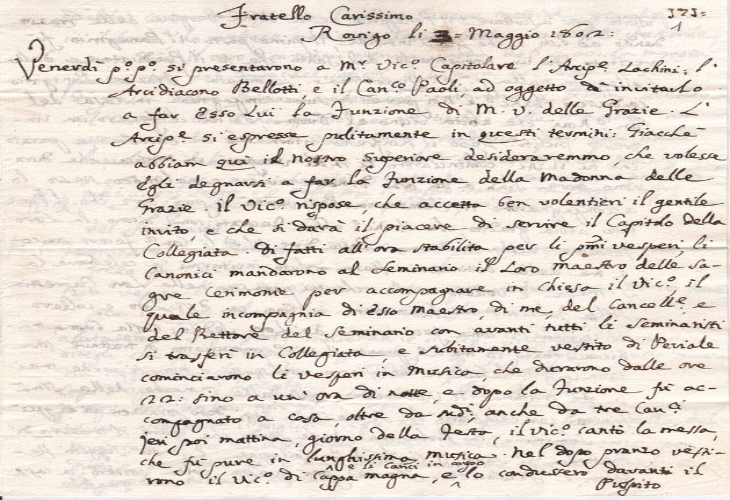 Fratello Carissimo 171=
Rovigo li 3= Maggio 1802:
Venerdì pº. pº. si presentarono a Mr. Vicº. Capitolare l'Arcipe. Lachini; l'
Arcidiacono Bellotti, e il Cancº. Paoli, ad oggetto di invitarlo
a far Esso Lui la Funzione di M. V. delle Grazie. L'
Arcipe. si espresse pulitamente in questi termini: Giacchè
abbiam quà il nostro Superiore desideraremmo, che volesse
Egli degnarsi a far la Funzione della Madonna delle
Grazie. il Vicº. rispose, che accetta ben volentieri il gentile
invito, e che si darà il piacere di servire il Capitolo della
Collegiata. Di fatti all'ora stabilita per li pmi vesperi, li
Canonici mandarono al Seminario il Loro Maestro delle sa-
gre Cerimonie per accompagnare in Chiesa il Vicº. il
quale in compagnia di Esso Maestro, di me, del Cancelle. e
del Rettore del Seminario con avanti tutti li Seminaristi
si trasferì in Collegiata, e subitamente vestito di Peviale
cominciarono li vesperi in Musica, che durarono dalle ore
22: sino a un'ora di notte, e dopo la Funzione fù ac-
compagnato a casa, oltre da sudi. anche da tre Canci.
jeri poi mattina, giorno della Festa, il Vicº. cantò la messa,
che fù pure in lunghissima musica. Nel dopo pranzo vesti-
e li Canci in corpo
rono il Vicº. di Cappa magna, e lo condussero davanti il
Pulpito